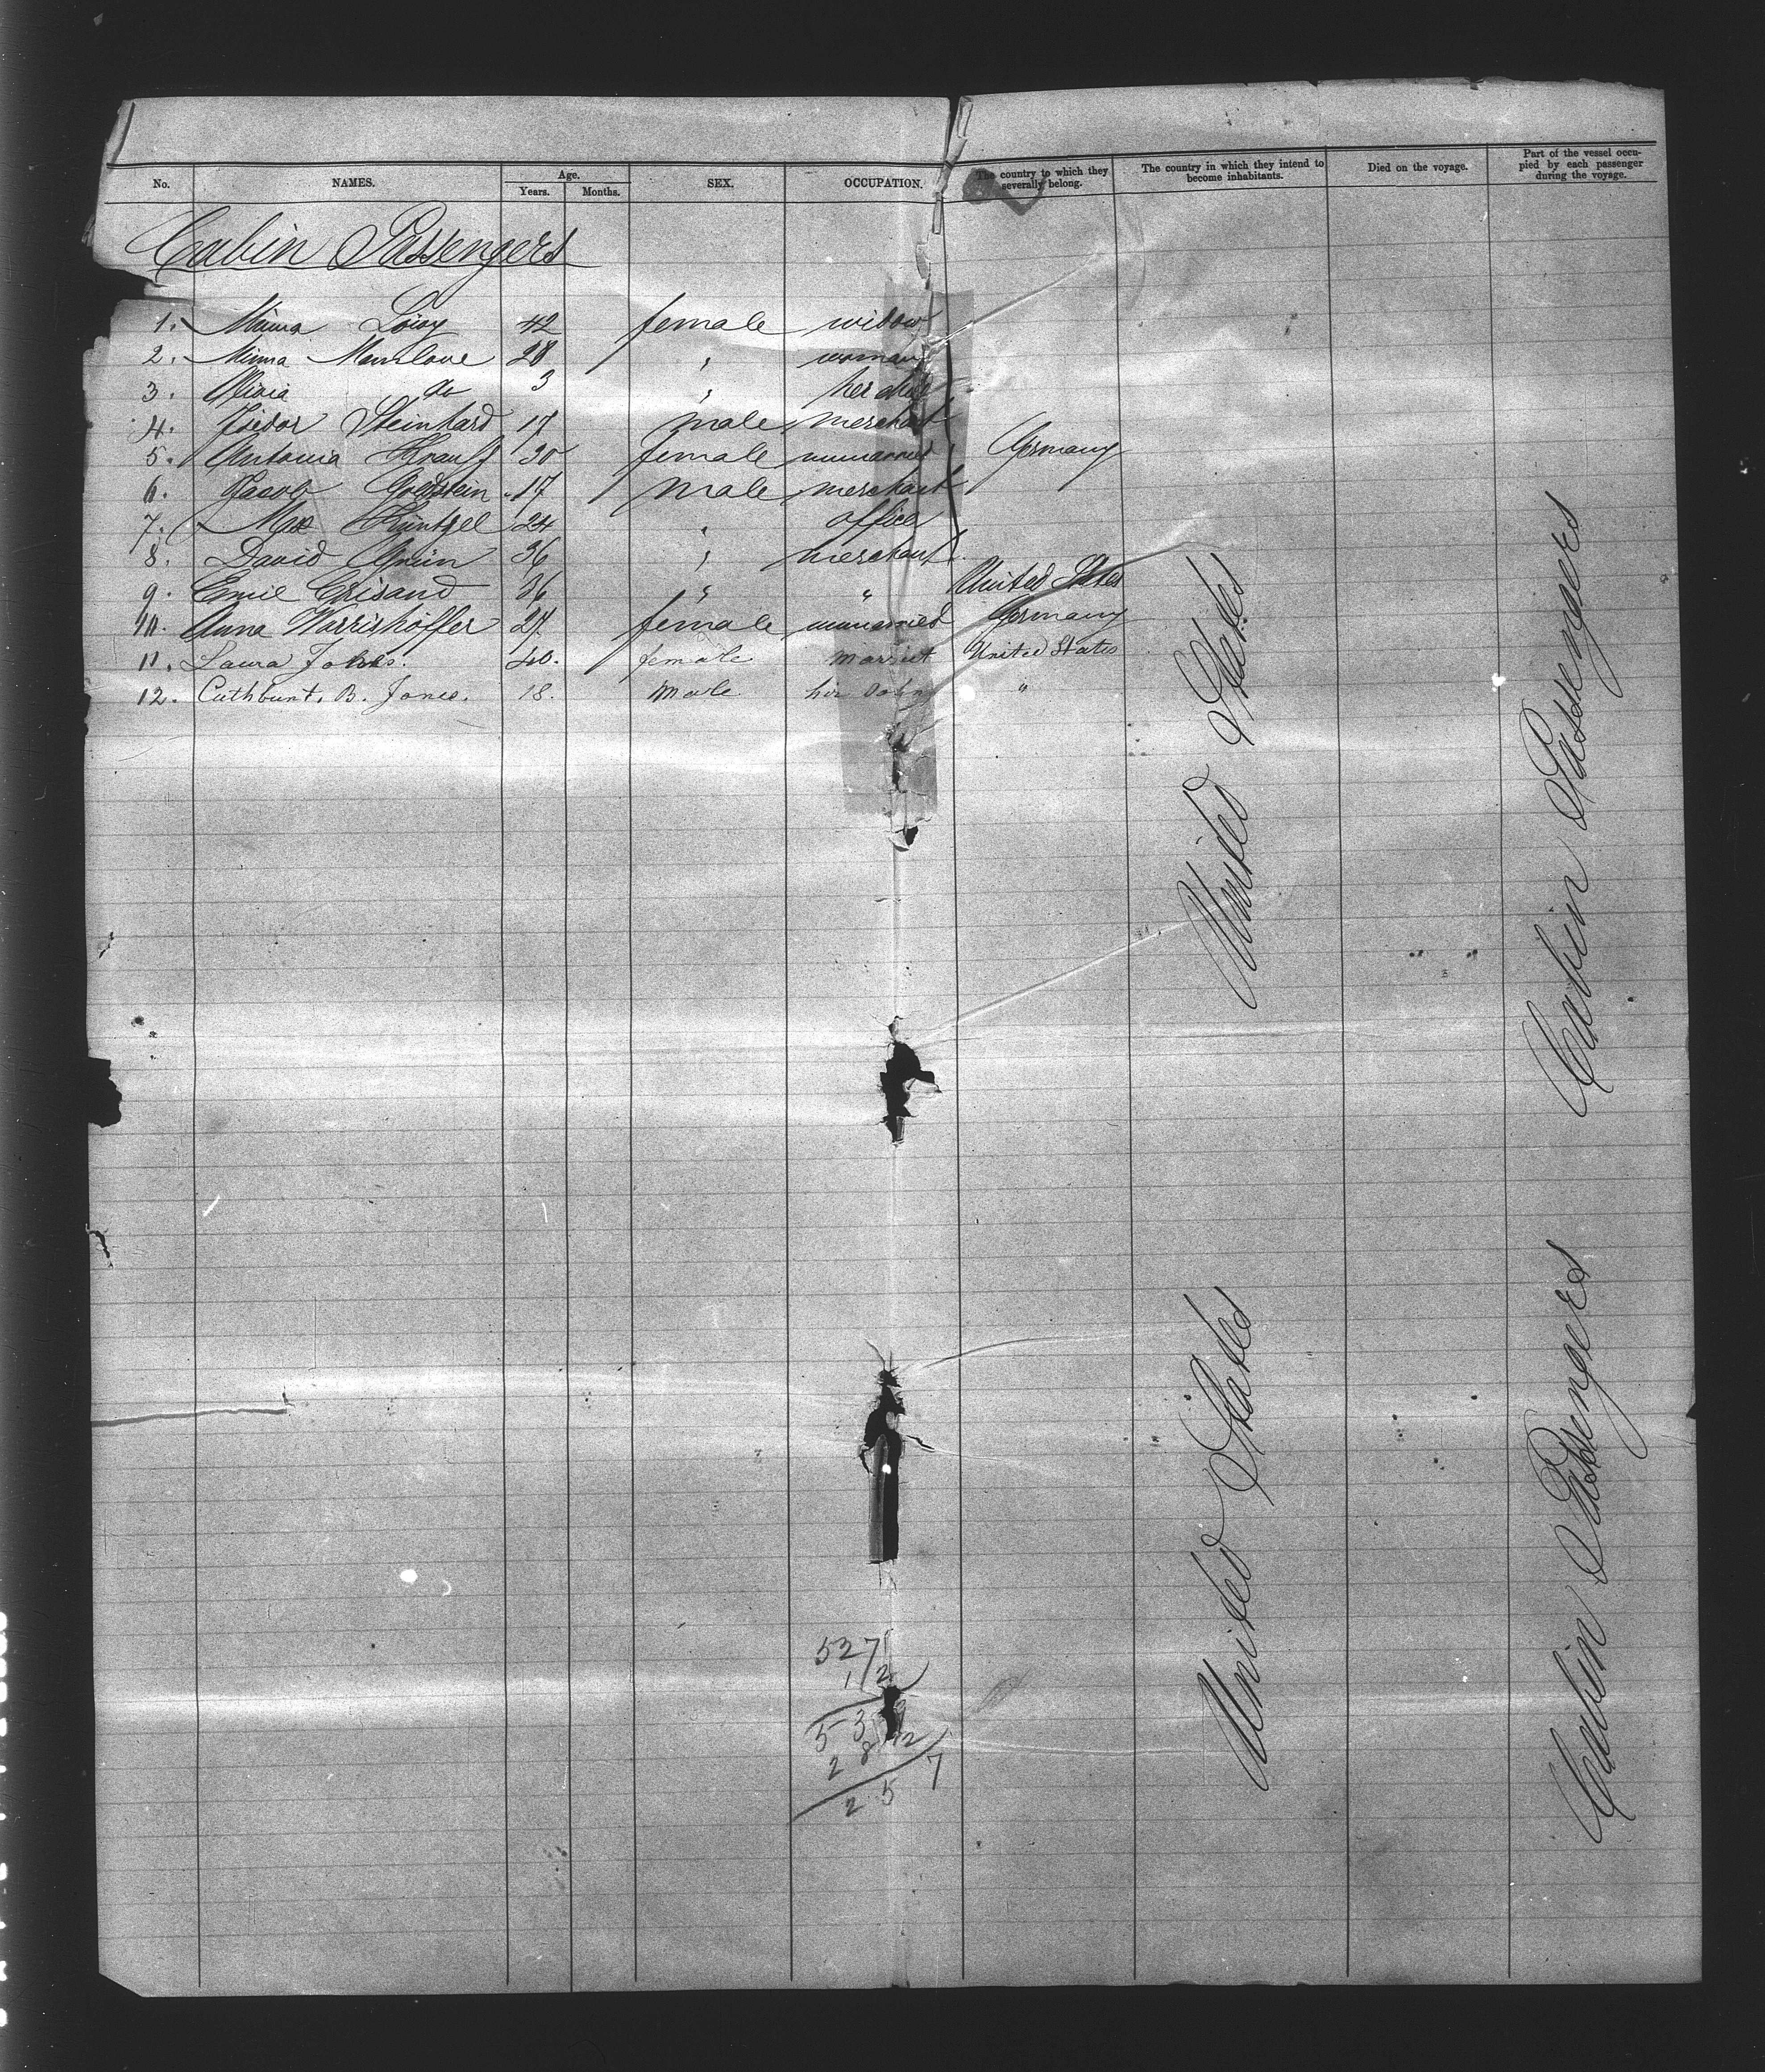 No. NAMES. Age. Years. Months. SEX. OCCUPATION. The country to which they severally belong. The country in which they intend to become inhabitants. Died on the voyage. Part of the vessel occupied by each passenger during the voyage.
Cabin Passengers
1. Minna 42 female widow
2. Minna Manlove 28 " woman
3. Olivia do 3 " her child
4. Isidor Steinhard 17 male merchant
5. Antonia Knauff 30 female unmarried Germany
6. Jacob Goldstein 17 male merchant
7. Max Küntzel 24 " office
8. David Grün 36 " merchant
9. Emil Crisand 36 " " United States
10. Anna Worrishöffer 24 female unmarried Germany
11. Laura Jones. 40. female Marriet United States
12. Cuthbunt. B. Jones. 18. Male her Sohn "
United States
Cabin Passengers
United States
Cabin Passengers
527
12
539
282
257